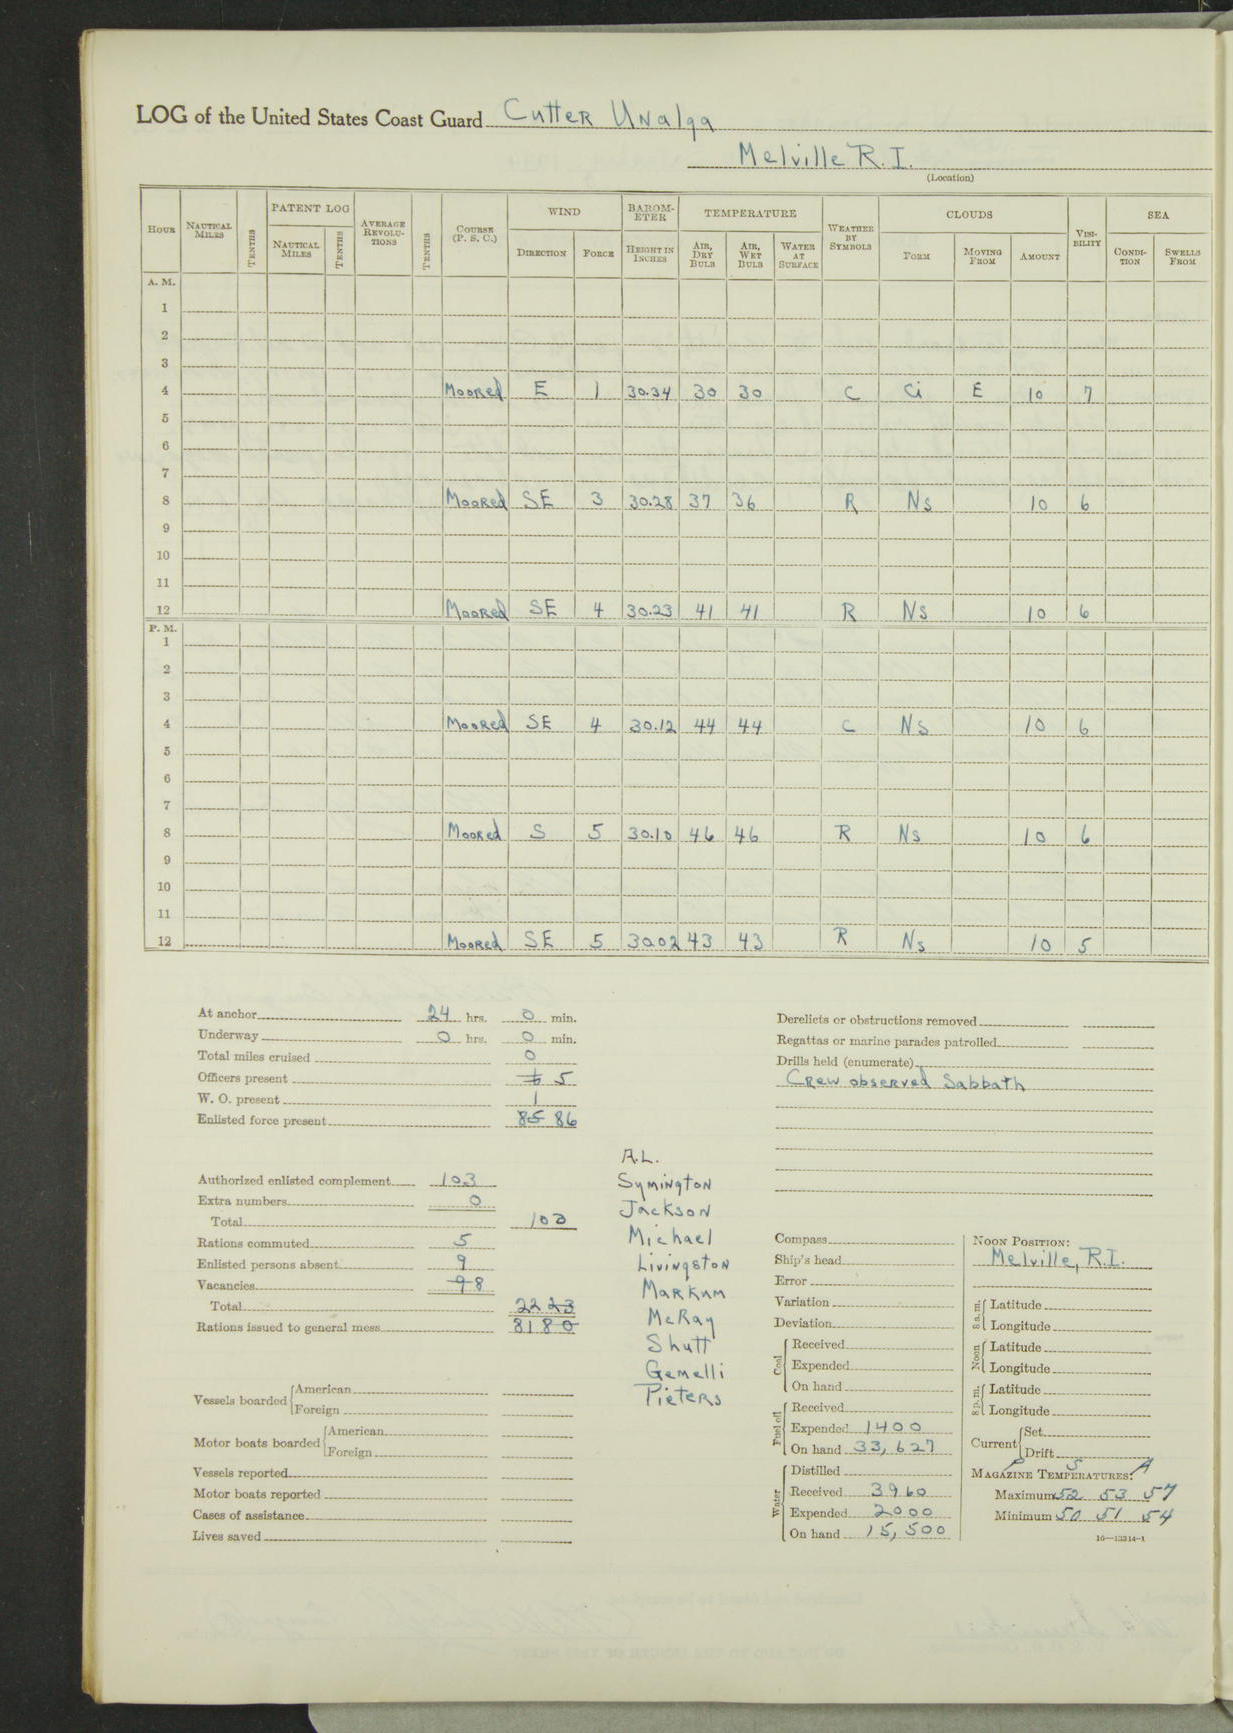 LOG of the United States Coast Guard Cutter Unalga
Melville R.I.
(Location)
HOUR NAUTICAL MILES TENTHS PATENT LOG NAUTICAL MILES TENTHS AVERAGE REVOLUTIONS TENTHS COURSE (P. S. C.) WIND DIRECTION FORCE BAROMETER HEIGHT IN INCHES TEMPERATURE AIR, DRY BULB AIR, WET BULB WATER AT SURFACE WEATHER BY SYMBOLS CLOUDS FORM MOVING FROM AMOUNT VISIBILITY SEA CONDITION SWELLS FROM
A. M.
1
2
3
4 Moored E 1 30.34 30 30 C Ci E 10 7
5
6
7
8 Moored SE 3 30.28 37 36 R Ns 10 6
9
10
11
12 Moored SE 4 30.23 41 41 R Ns 10 6
P. M.
1
2
3
4 Moored SE 4 30.12 44 44 C Ns 10 6
5
6
7
8 Moored S 5 30.10 46 46 R Ns 10 6
9
10
11
12 Moored SE 5 30.02 43 43 R Ns 10 5
At anchor 24 hrs. 0 min.
Underway 0 hrs. 0 min.
Total miles cruised 0
Officers present 6 5
W. O. present 1
Enlisted force present 85 86
Authorized enlisted complement 103
Extra numbers 0
Total 103
Rations commuted 5
Enlisted persons absent 9
Vacancies 9 8
Total 22 23
Rations issued to general mess 81 80
Vessels boarded American
Foreign
Motor boats boarded American
Foreign
Vessels reported
Motor boats reported
Cases of assistance
Lives saved
A.L.
Symington
Jackson
Michael
Livingston
Markum
McRay
Shutt
Gemelli
Pieters
Derelicts or obstructions removed
Regattas or marine parades patrolled
Drills held (enumerate)
Crew observed Sabbath
Compass
Ship's head
Error
Variation
Deviation
Coal Received
Expended
On hand
Fuel oil Received
Expended 1400
On hand 33,627
Water Distilled
Received 3960
Expended 2000
On hand 15,500
NOON POSITION:
Melville, R.I.
8 a.m. Latitude
Longitude
Noon Latitude
Longitude
8 p.m. Latitude
Longitude
Current Set
Drift
P S A
MAGAZINE TEMPERATURES:
Maximum 52 53 57
Minimum 50 51 54
16—13314-1